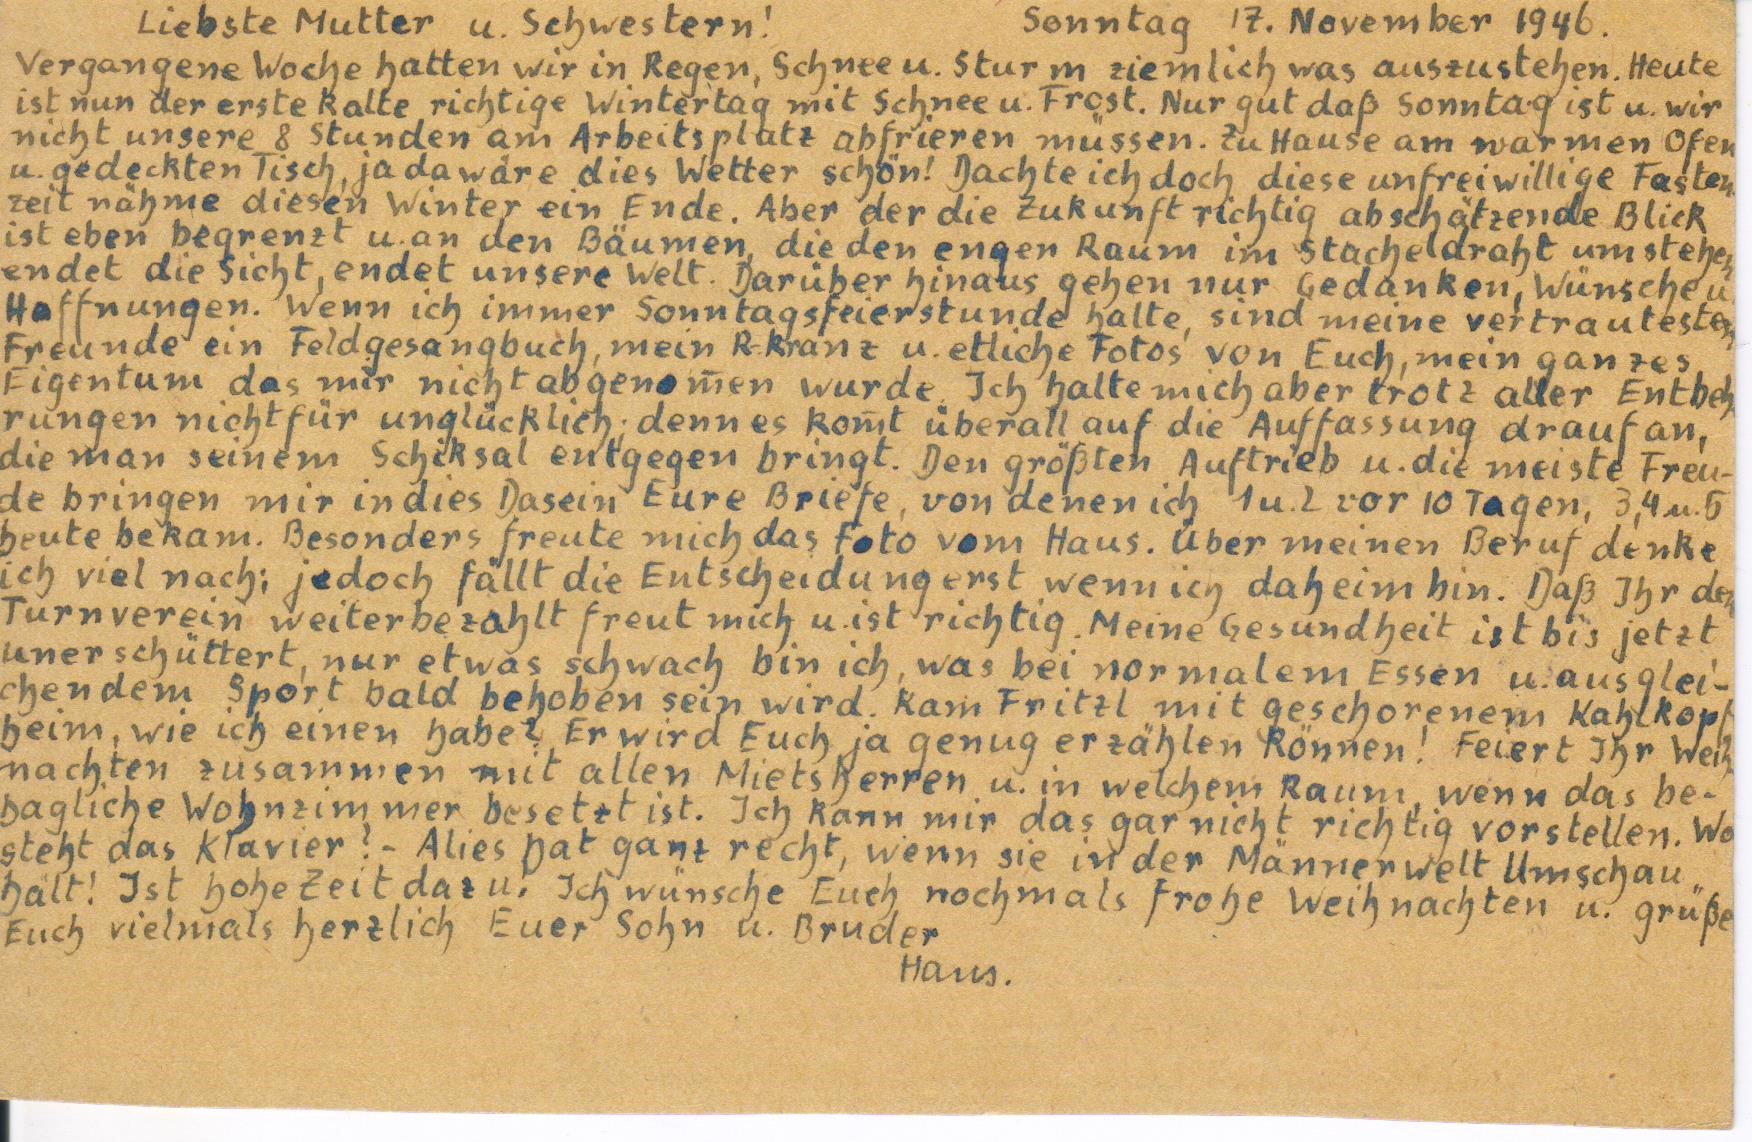 Liebste Mutter u. Schwestern! Sonntag 17. November 1946.
Vergangene Woche hatten wir in Regen, Schnee u. Sturm ziemlich was auszustehen. Heute
ist nun der erste kalte richtige Wintertag mit Schnee u. Frost. Nur gut daß Sonntag ist u. wir
nicht unsere 8 Stunden am Arbeitsplatz abfrieren müssen. Zu Hause am warmen Ofen
u. gedeckten Tisch, ja da wäre dies Wetter schön! Dachte ich doch diese unfreiwillige Fasten
zeit nähme diesen Winter ein Ende. Aber der die Zukunft richtig abschätzende Blick
ist eben begrenzt u. an den Bäumen, die den engen Raum im Stacheldraht umstehen
endet die Sicht, endet unsere Welt. Darüber hinaus gehen nur Gedanken, Wünsche u.
Hoffnungen. Wenn ich immer Sonntagsfeierstunde halte, sind meine vertrautesten
Freunde ein Feldgesangbuch, mein R.kranz u. etliche Fotos von Euch, mein ganzes
Eigentum das mir nicht abgenom̅en wurde. Ich halte mich aber trotz aller Entbeh
rungen nicht für unglücklich; denn es kom̅t überall auf die Auffassung drauf an,
die man seinem Schiksal entgegen bringt. Den größten Auftrieb u. die meiste Freu-
de bringen mir in dies Dasein Eure Briefe, von denen ich 1 u. 2 vor 10 Tagen, 3,4 u. 5
heute bekam. Besonders freute mich das Foto vom Haus. Über meinen Beruf denke
ich viel nach; jedoch fällt die Entscheidung erst wenn ich daheim bin. Daß Ihr den
Turnverein weiterbezahlt freut mich u. ist richtig. Meine Gesundheit ist bis jetzt
unerschüttert, nur etwas schwach bin ich, was bei normalem Essen u. ausglei-
chendem Sport bald behoben sein wird. Kam Fritzl mit geschorenem Kahlkopf
heim, wie ich einen habe? Er wird Euch ja genug erzählen können! Feiert Ihr Weih
nachten zusammen mit allen Mietsherren u. in welchem Raum, wenn das be-
hagliche Wohnzimmer besetzt ist. Ich kann mir das gar nicht richtig vorstellen. Wo
steht das Klavier? - Alies hat ganz recht, wenn sie in der Männerwelt Umschau
hält! Ist hohe Zeit dazu. Ich wünsche Euch nochmals frohe Weihnachten u. grüße
Euch vielmals herzlich Euer Sohn u. Bruder
Hans.